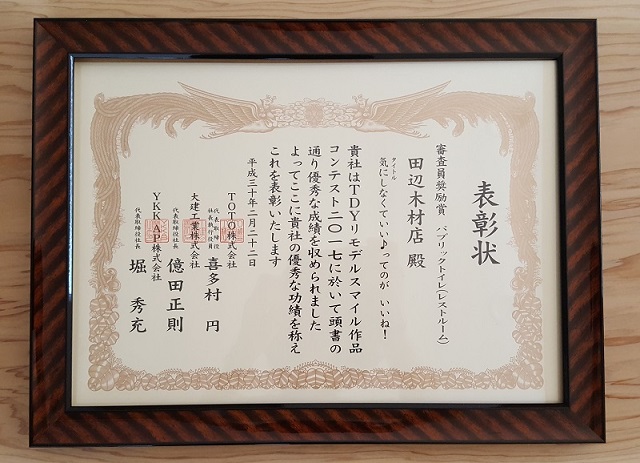 表彰状
審査員奨励賞 パブリックトイレ(レストルーム)
田辺木材店 殿
タイトル
気にしなくていい♪ってのが いいね!
貴社はTDYリモデルスマイル作品
コンテスト二〇一七に於いて頭書の
通り優秀な成績を収められました
よってここに貴社の優秀な功績を称え
これを表彰いたします
平成三十年二月二十二日
TOTO株式会社
代表取締役
社長執行役員
喜多村 円
大建工業株式会社
代表取締役社長
億田正則
YKK AP株式会社
代表取締役社長
堀 秀充